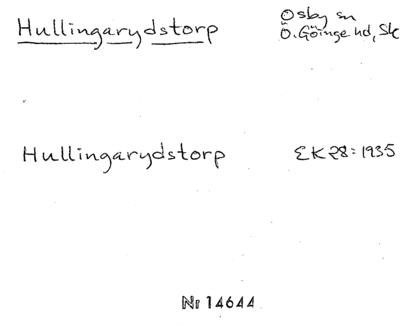 Hullingarydstorp
Osby sn
Ö. Göinge hd, Sk
Hullingarydstorp
EK 28: 1935
Nr 14644